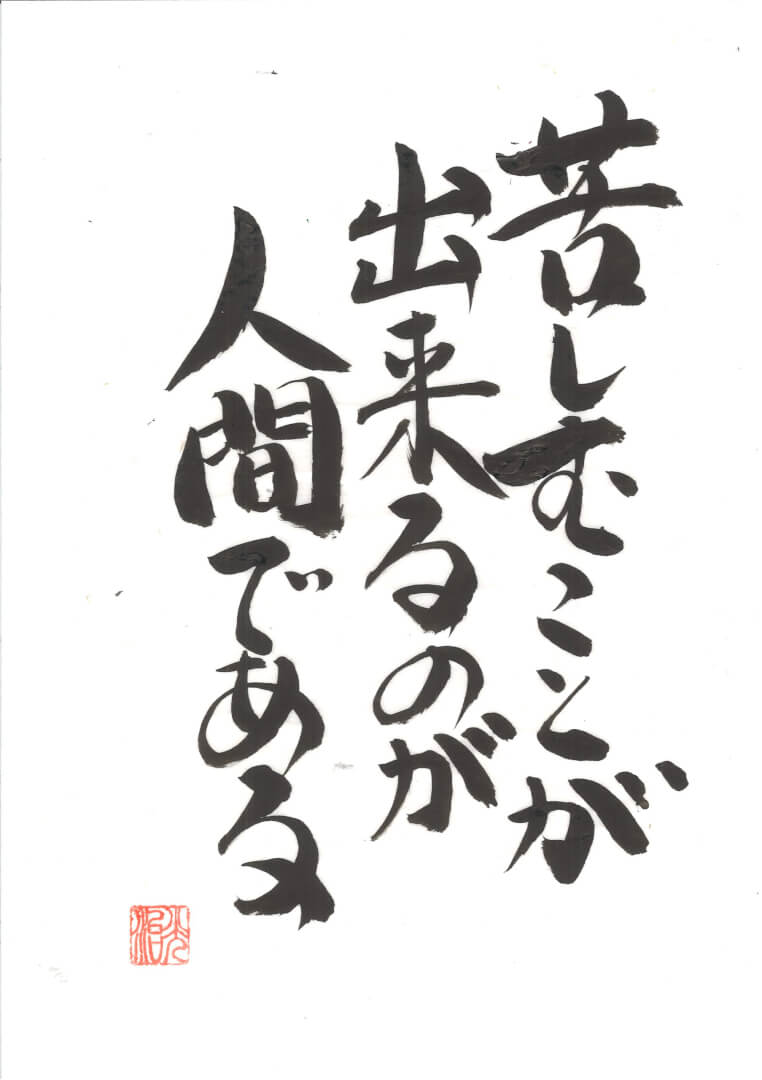 苦しむことが
出来るのが
人間である